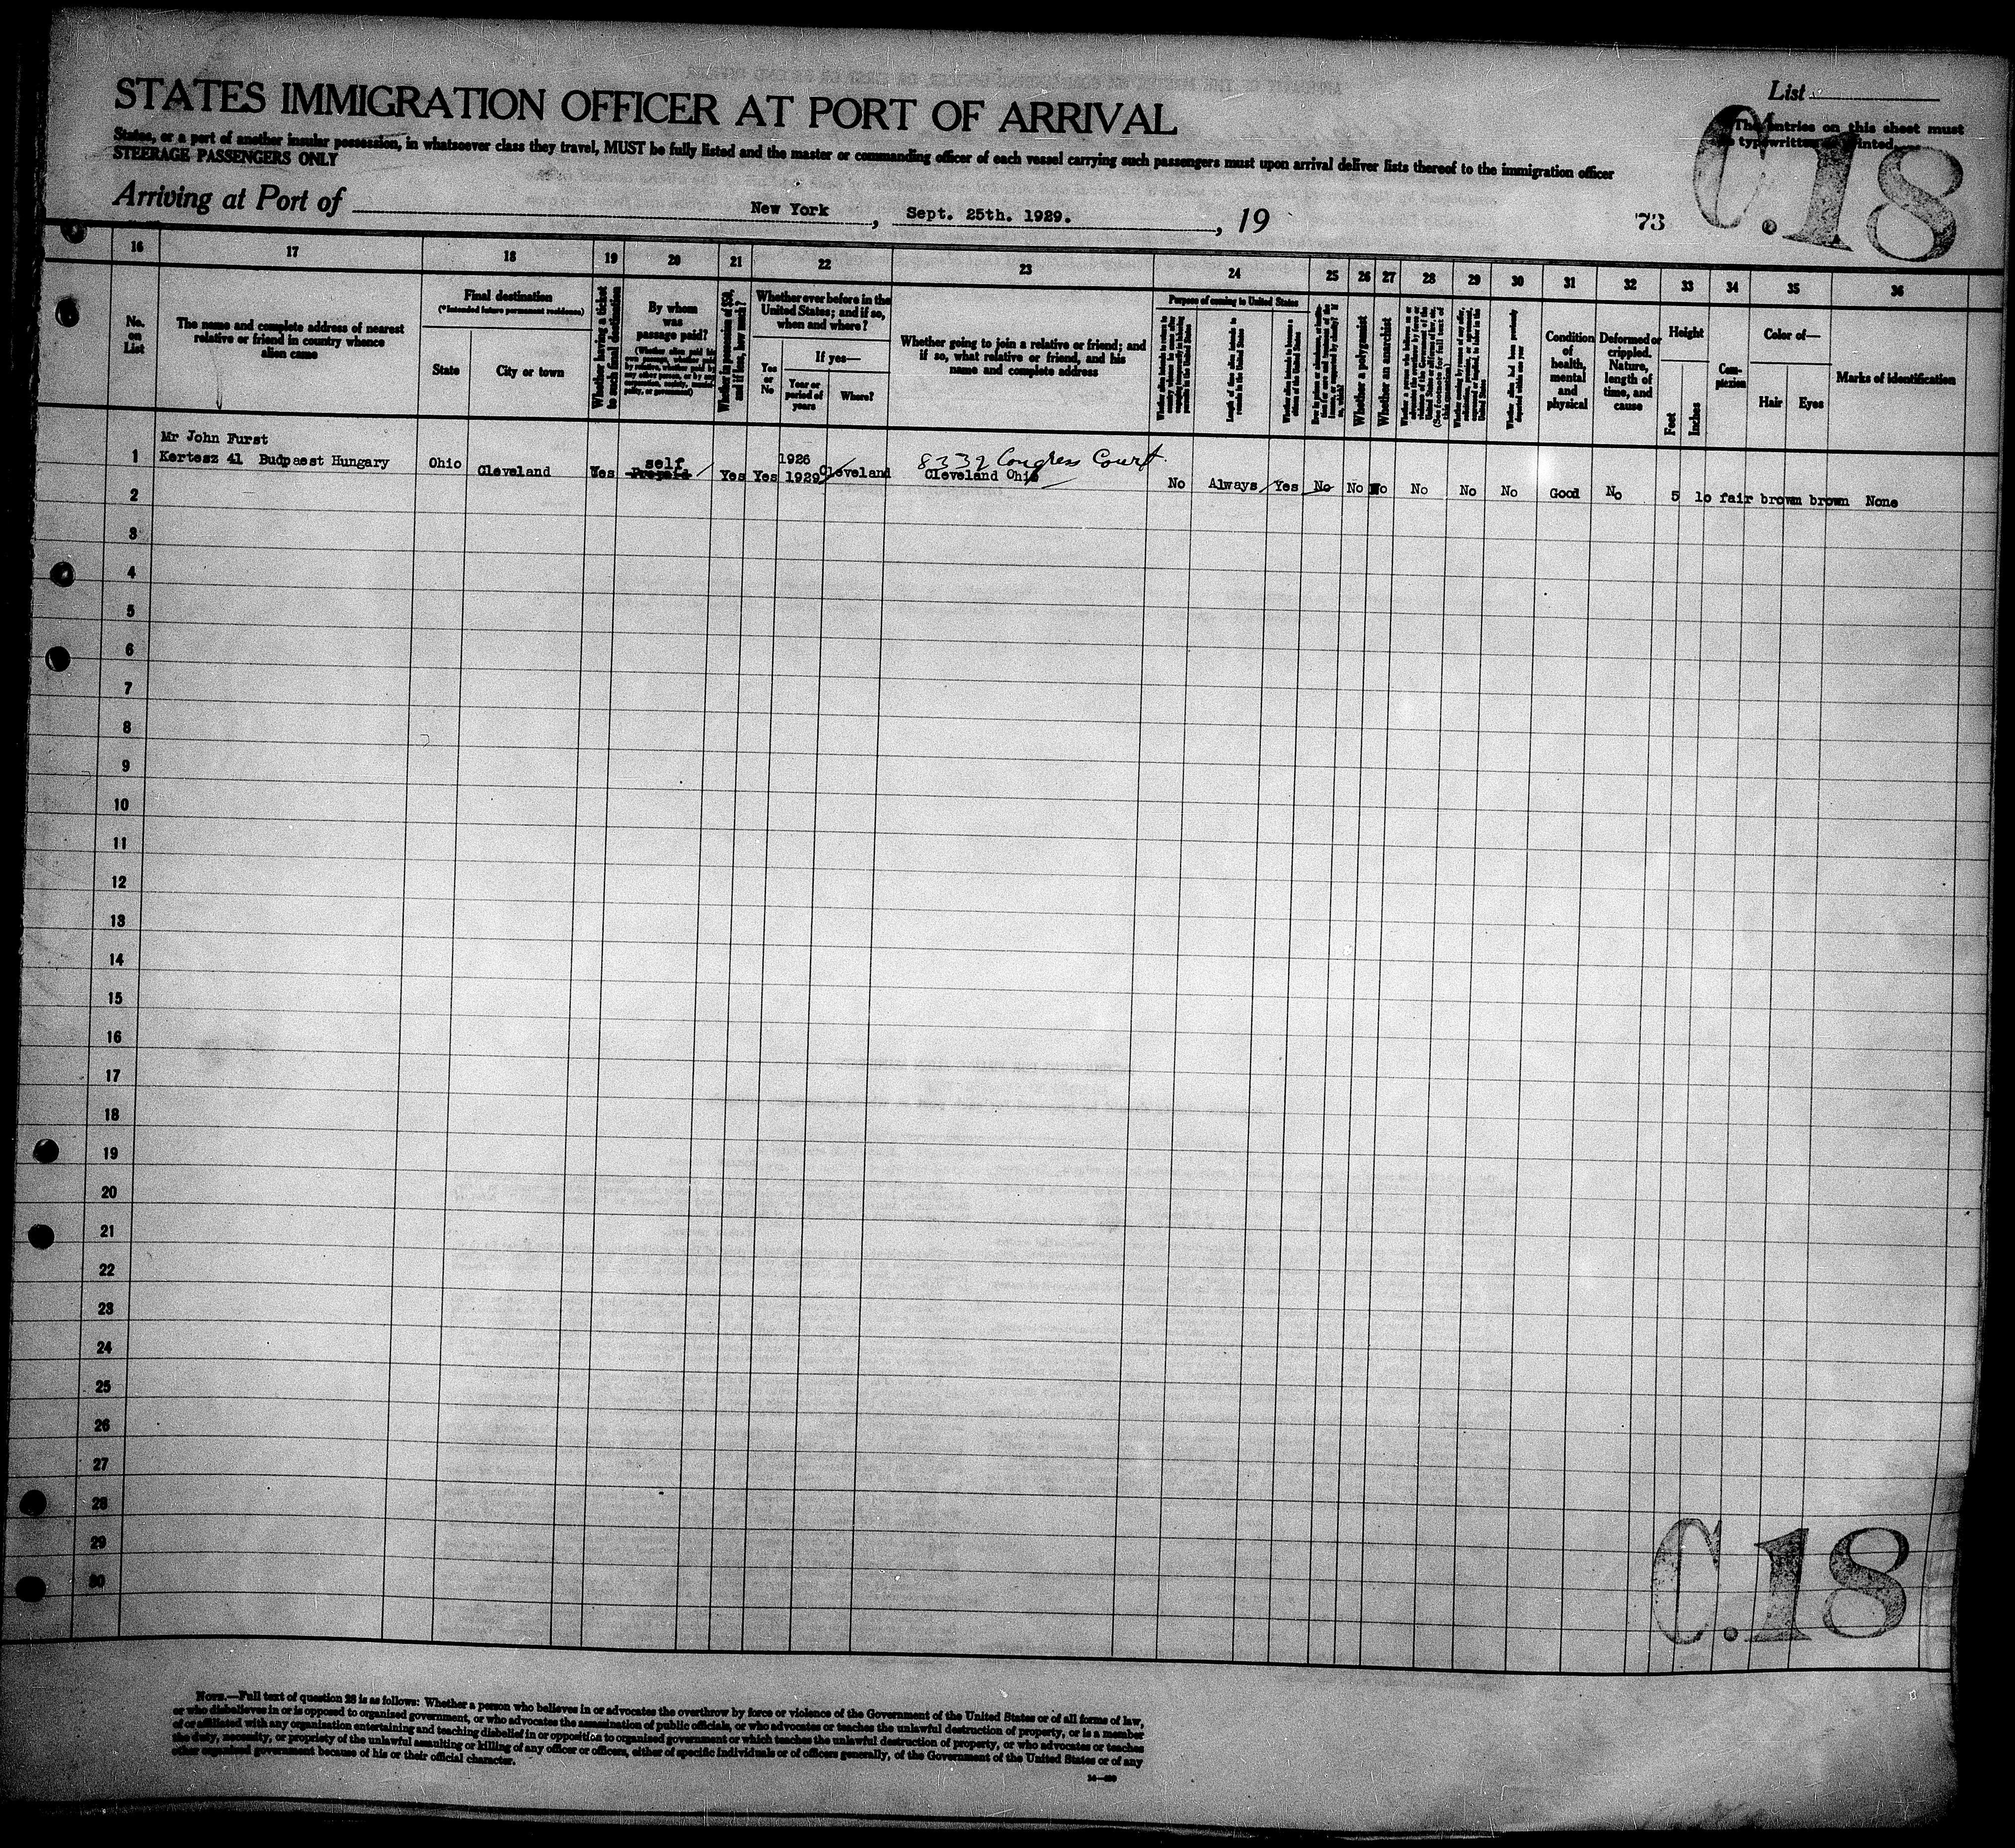 List
STATES IMMIGRATION OFFICER AT PORT OF ARRIVAL
The entries on this sheet must
typewritten printed
C.18
States, or a port of another insular possession, in whatsoever class they travel, MUST be fully listed and the master or commanding officer of each vessel carrying such passengers must upon arrival deliver lists thereof to the immigration officer
STEERAGE PASSENGERS ONLY
Arriving at Port of New York, Sept. 25th. 1929., 19
73
16 17 18 19 20 21 22 23 24 25 26 27 28 29 30 31 32 33 34 35 36
No. on List
The name and complete address of nearest relative or friend in country whence alien came
Final destination
(*Intended future permanent residence)
State
City or town
Whether having a ticket to such final destination
By whom was passage paid?
Whether in possession of $50, and if less, how much?
Whether ever before in the United States; and if so, when and where?
Yes or No
If yes—
Year or period of years
Where?
Whether going to join a relative or friend; and if so, what relative or friend, and his name and complete address
Purpose of coming to United States
Length of time alien intends to remain in the United States
Whether alien intends to become a citizen of the United States
Whether a polygamist
Whether an anarchist
Whether alien had been previously deported within one year
Condition of health, mental and physical
Deformed or crippled. Nature, length of time, and cause
Height
Feet
Inches
Com-plexion
Color of—
Hair
Eyes
Marks of identification
Mr John Furst
1 Kertesz 41 Budpaest Hungary Ohio Cleveland Yes self Prepaid Yes Yes 1926 1929 Cleveland 8332 Congress Court Cleveland Ohio No Always Yes No No No No No No Good No 5 10 fair brown brown None
2
3
4
5
6
7
8
9
10
11
12
13
14
15
16
17
18
19
20
21
22
23
24
25
26
27
28
29
30
C.18
NOTE.—Full text of question 28 is as follows: Whether a person who believes in or advocates the overthrow by force or violence of the Government of the United States or of all forms of law,
or who disbelieves in or is opposed to organized government, or who advocates the assassination of public officials, or who advocates or teaches the unlawful destruction of property, or is a member
of or affiliated with any organization entertaining and teaching disbelief in or opposition to organized government or which teaches the unlawful destruction of property, or who advocates or teaches
the duty, necessity, or propriety of the unlawful assaulting or killing of any officer or officers, either of specific individuals or of officers generally, of the Government of the United States or of any
other organized government because of his or their official character.